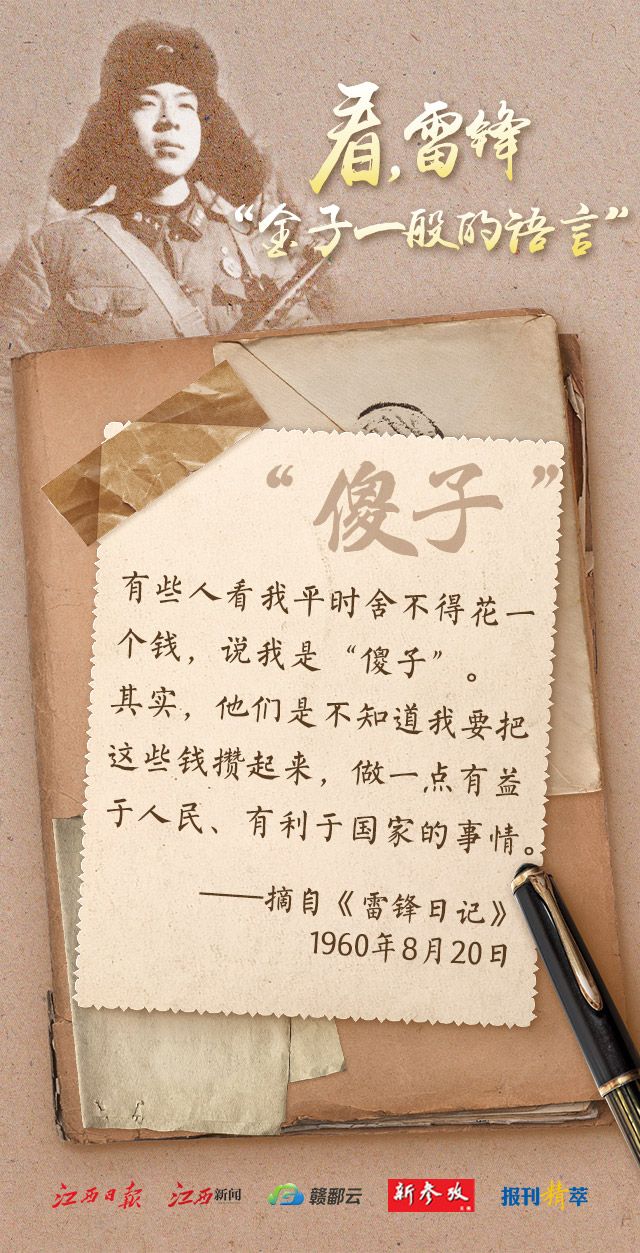 看,雷锋
“金子一般的语言”
“傻子”
有些人看我平时舍不得花一
个钱，说我是“傻子”。
其实，他们是不知道我要把
这些钱攒起来，做一点有益
于人民、有利于国家的事情。
——摘自《雷锋日记》
1960年8月20日
江西日报 江西新闻 赣鄱云 新参考 报刊精萃